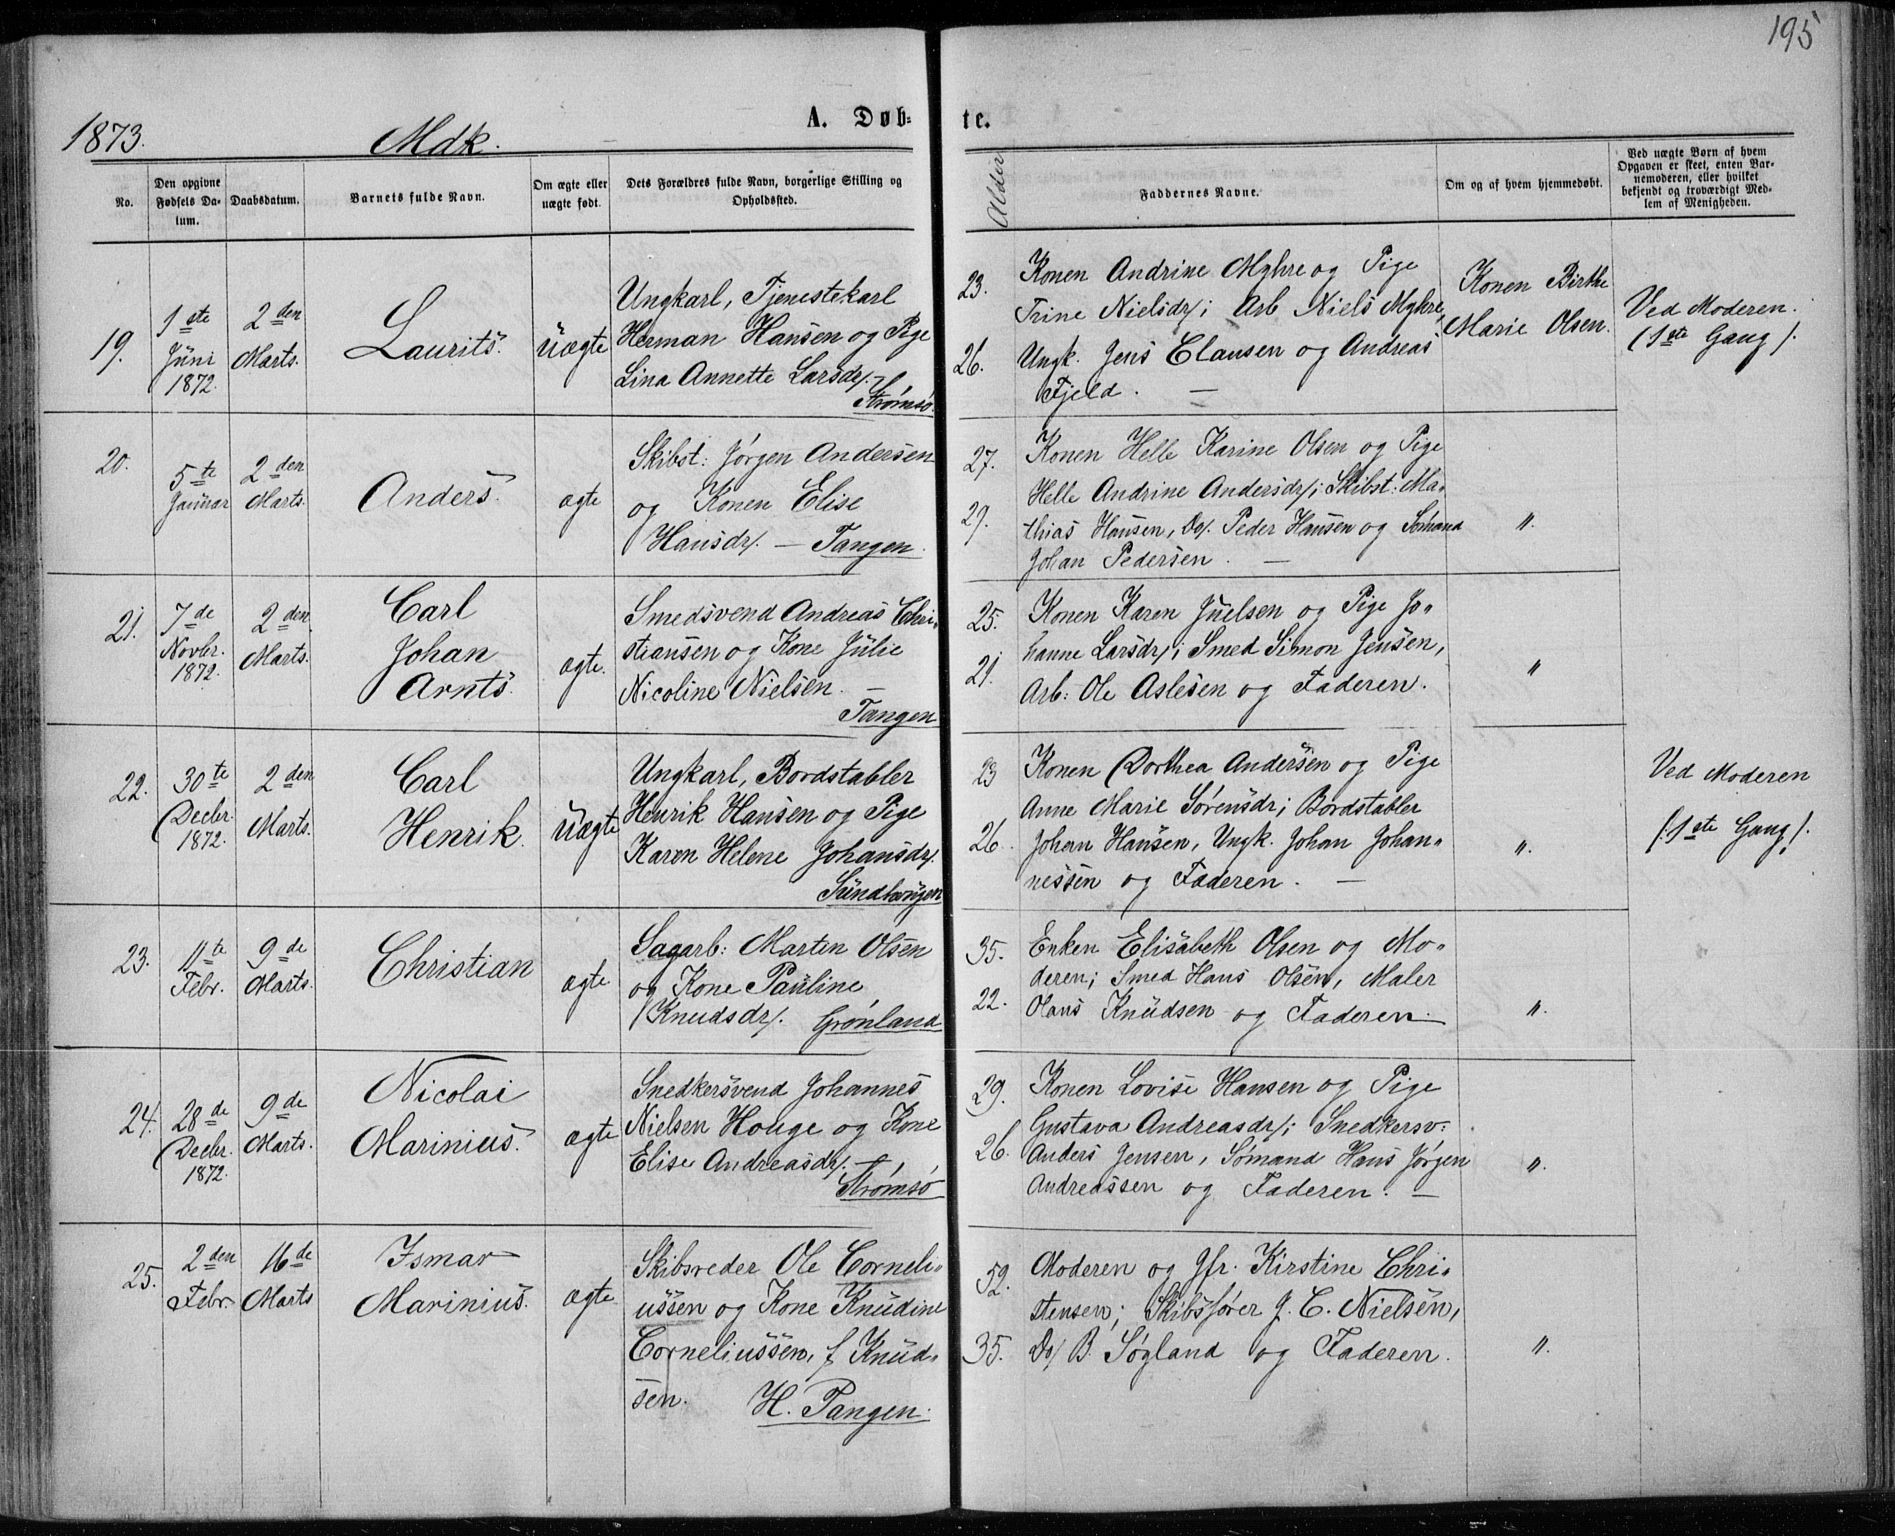 195
1873.
Mdk.
A. Døb-
te.
No.
Den opgivne
Fødsels Da-
tum.
Daabsdatum.
Barnets fulde Navn.
Om ægte eller
uægte født.
Dets Forældres fulde Navn, borgerlige Stilling og
Opholdssted.
Alder
Faddernes Navne.
Om og af hvem hjemmedøbt.
Ved uægte Børn af hvem
Opgaven er skeet, enten Bar-
nemoderen, eller hvilket
bekjendt og troværdigt Med-
lem af Menigheden.
19.
1ste
Juni
1872.
2den
Marts.
Laurits.
Uægte
Ungkarl, Tjenestekarl
Herman Hansen og Pige
Lina Annette Larsdr/. —
Strømsø.
23.
26.
Konen Andrine Myhre og Pige
Trine Nielsdr/; Arb Niels Myhre,
Ungk. Jens Clausen og Andreas
Fjeld. —
Konen Birthe
Marie Olsen.
Ved Moderen.
(1ste Gang/.
20.
5te
Januar
2den
Marts.
Anders.
ægte
Skibst: Jørgen Andersen
og Konen Elise
Hansdr/. — Tangen.
27.
29.
Konen Helle Karine Olsen og Pige
Helle Andrine Andersdr/; Skibst: Ma-
thias Hansen, Do/. Peder Hansen og Sømand
Johan Pedersen. —
〃.
21.
7de
Novbr.
1872.
2den
Marts.
Carl
Johan
Arnts.
ægte.
Smedsvend Andreas Chri-
stiansen og Kone Julie
Nicoline Nielsen. —
Tangen
25.
21.
Konen Karen Juelsen og Pige Jo-
hanne Larsdr/; Smed Simon Jensen,
Arb: Ole Aslesen og Faderen.
〃
22.
30te
Decbr.
1872.
2den
Marts.
Carl
Henrik.
Uægte
Ungkarl, Bordstabler
Henrik Hansen og Pige
Karen Helene Johansdr/.
Sundhaugen
23
26.
Konen Dorthea Andersen og Pige
Anne Marie Sørensdr; Bordstabler
Johan Hansen, Ungk. Johan Johan-
nessen og Faderen. —
〃.
Ved Moderen
(:1ste Gang/.
23.
11te
Febr.
9de
Marts.
Christian
ægte
Sagarb: Martin Olsen
og Kone Pauline
Knudsdr/. Grønland
35.
22.
Enken Elisabeth Olsen og Mo-
deren; Smed Hans Olsen, Maler
Olaus Knudsen og Faderen.
〃.
24.
28de
Decbr.
1872.
9de
Marts.
Nicolai
Marinius.
ægte
Snedkersvend Johannes
Nielsen Houge og Kone
Elise Andreasdr/. —
Strømsø
29.
26.
Konen Lovise Hansen og Pige
Gustava Andreasdr/; Snedkersv:
Anders Jensen, Sømand Hans Jørgen
Andreassen og Faderen. —
〃.
25.
2den
Febr.
16de
Marts
Ismar
Marinius.
ægte
Skibsreder Ole Corneli-
ussen og Kone Knudine
Corneliussen, f Knud-
sen. H. Tangen.
52.
35.
Moderen og Jfr. Kirstine Chri-
stensen; Skibsfører J. C. Nielsen,
Do/ B. Søgland og Faderen.
〃.